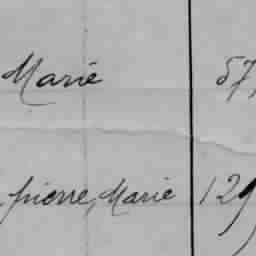 Marie 57,
pierre, Marie 129